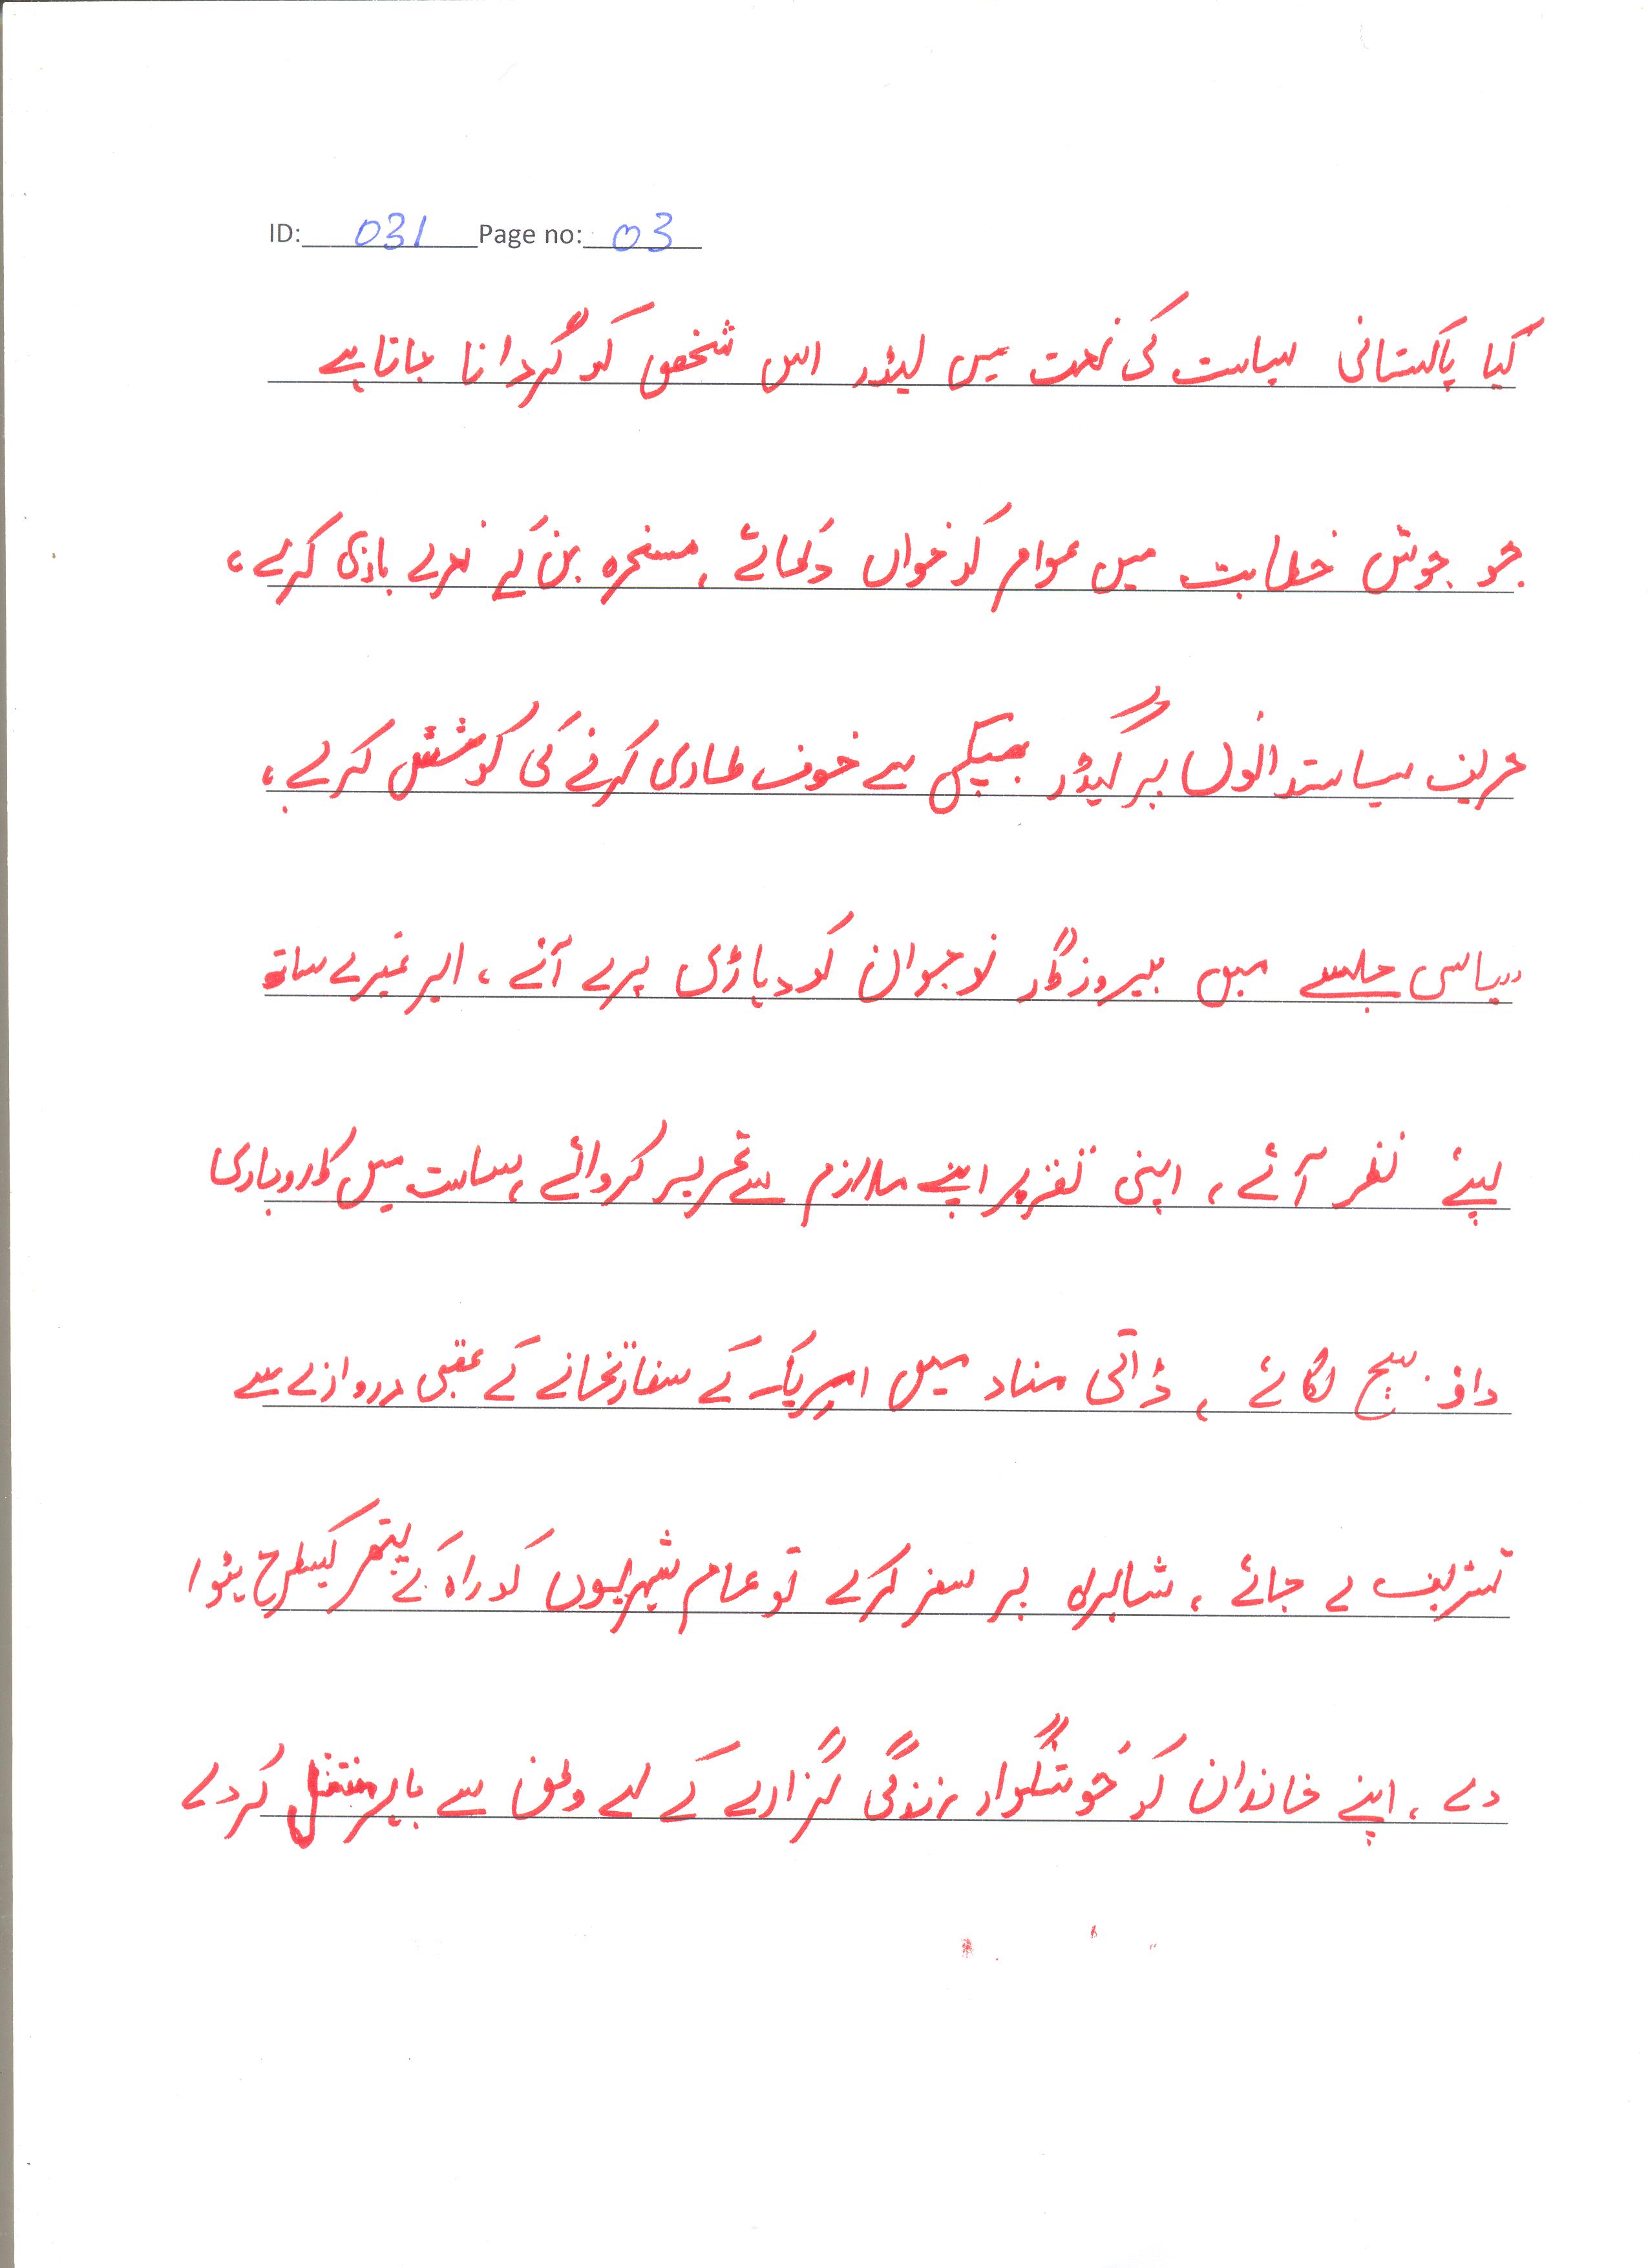 ID: 031 Page no: 03
کیا پاکستانی سیاست کی لغت میں لیڈر اس شخص کو گردانا جاتا ہے
جو جوش خطابت میں عوام کو خواب دکھائے، مسخرہ بن کے نعرے بازی کرے،
حریف سیاستدانوں پر گیڈر بھبکی سے خوف طاری کرنے کی کوشش کرے،
سیاسی جلسے میں بیروزگار نوجوان کو دہاڑی پر لے آئے، ایر غیرے ساتھ
لیئے نظر آئے، اپنی تقریر اپنے ملازم سے تحریر کروائے، سیاست میں کاروباری
داؤ پیچ لگائے، ذاتی مفاد میں امریکہ کے سفارتخانے کے عقبی دروازے سے
تشریف لے جائے، شاہراہ پر سفر کرے تو عام شہریوں کو راہ کے پتھر کیطرح ہٹوا
دے، اپنے خاندان کو خوشگوار زندگی گزارے کے لے وطن سے باہر منتقل کر دے